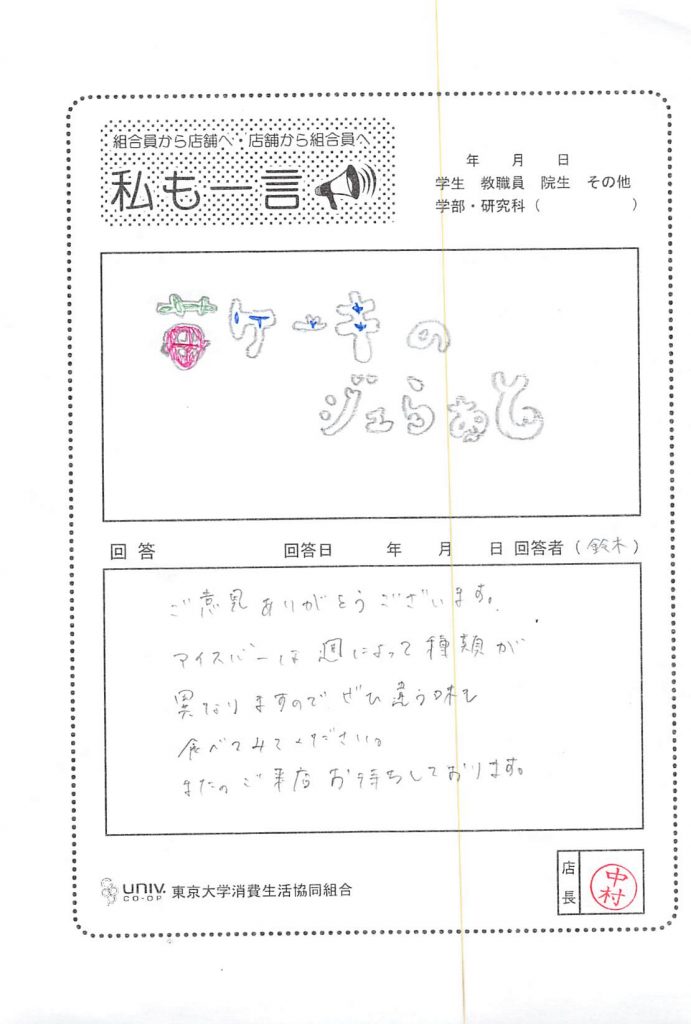 組合員から店舗へ・店舗から組合員へ
私も一言
年 月 日
学生 教職員 院生 その他
学部・研究科( )
苺ケーキの
ジェらぁと
回答 回答日 年 月 日 回答者(鈴木)
ご意見ありがとうございます。
アイスバーは週によって種類が
異なりますのでぜひ違う味も
食べてみてください。
またのご来店お待ちしております。
UNIV.
CO-OP
東京大学消費生活協同組合
店長
中村